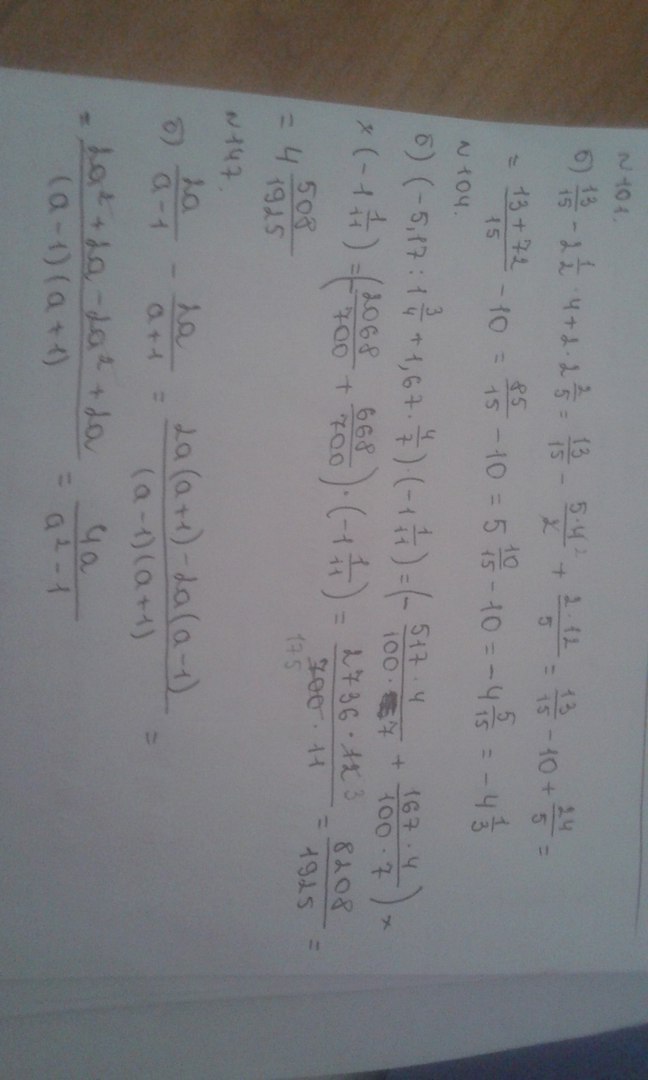 №101.
б) 13/15 - 2 1/2 · 4 + 2 · 2 2/5 = 13/15 - 5·4²/2 + 2·12/5 = 13/15 - 10 + 24/5 =
= 13+72/15 - 10 = 85/15 - 10 = 5 10/15 - 10 = -4 5/15 = -4 1/3
№104.
б) (-5,17 : 1 3/4 + 1,67 · 4/7) · (-1 1/11) = (- 517·4/100·7 + 167·4/100·7) ×
× (-1 1/11) = (- 2068/700 + 668/700) · (-1 1/11) = 2736·12³/700·11 = 8208/1925 =
175
= 4 508/1925
№147.
б) 2a/a-1 - 2a/a+1 = 2a(a+1)-2a(a-1)/(a-1)(a+1) =
= 2a²+2a-2a²+2a/(a-1)(a+1) = 4a/a²-1